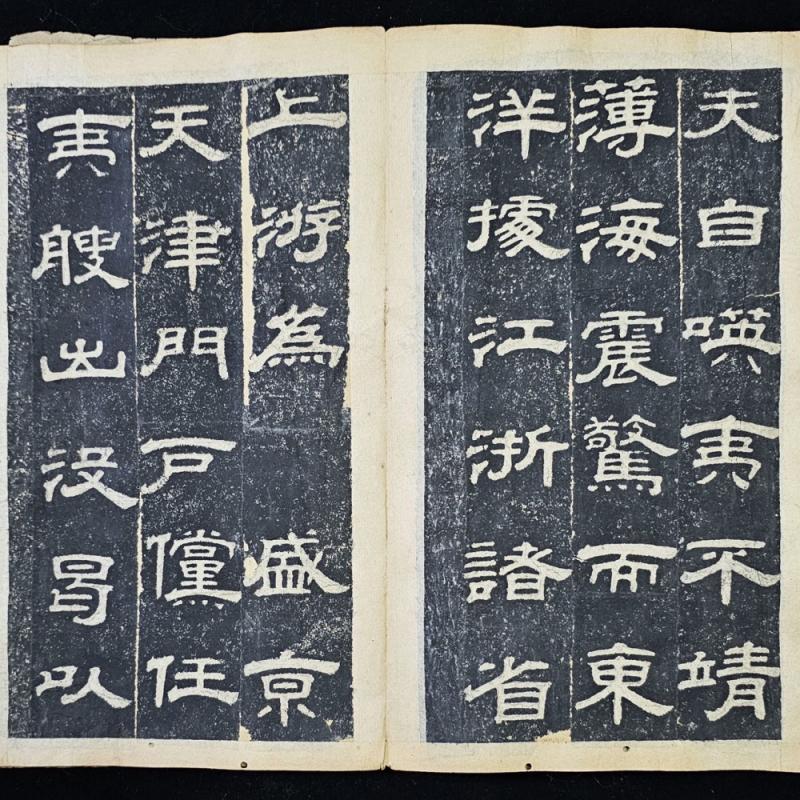 夫自𠸄夷不靖
薄海震驚而東
洋據江浙諸省
上游為 盛京
天津門戶儻任
夷艘出沒曷以